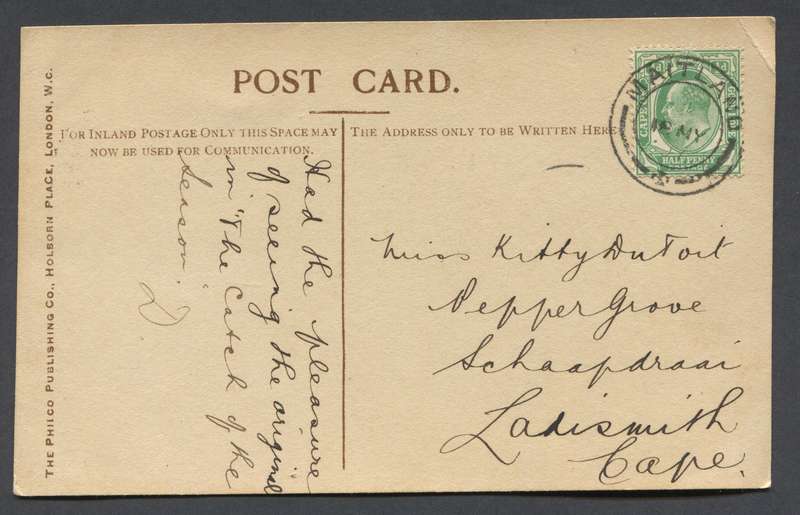 POST CARD.
FOR INLAND POSTAGE ONLY THIS SPACE MAY
NOW BE USED FOR COMMUNICATION.
THE ADDRESS ONLY TO BE WRITTEN HERE
THE PHILCO PUBLISHING CO., HOLBORN PLACE, LONDON, W.C.
Had the pleasure
of seeing the original
in "The Catch of the
Season".
D
Miss Kitty Du Toit
Pepper Grove
Schaapdraai
Ladismith
Cape.
MAITLAND
MY
HALFPENNY